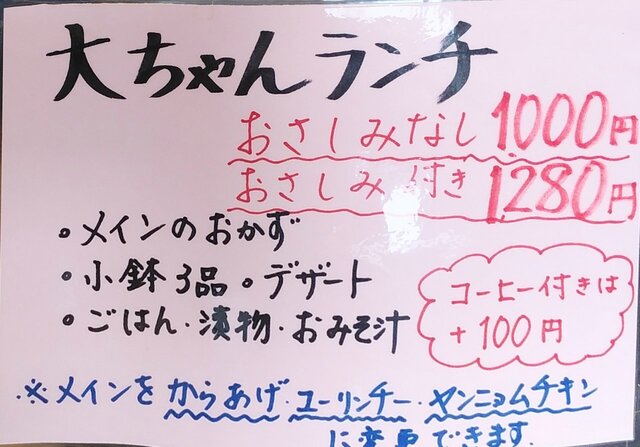 大ちゃんランチ
おさしみなし 1000円
おさしみ付き 1280円
・メインのおかず
・小鉢3品・デザート
・ごはん・漬物・おみそ汁
コーヒー付きは
+100円
※メインをからあげ・ユーリンチー・ヤンニョムチキン
に変更できます